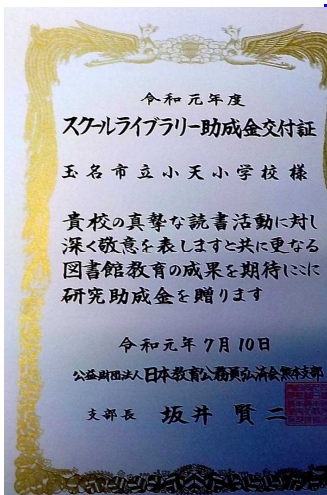 令和元年度
スクールライブラリー助成金交付証
玉名市立小天小学校様
貴校の真摯な読書活動に対し
深く敬意を表しますと共に更なる
図書館教育の成果を期待しここに
研究助成金を贈ります
令和元年7月10日
公益財団法人日本教育公務員弘済会熊本支部
支部長 坂井賢二